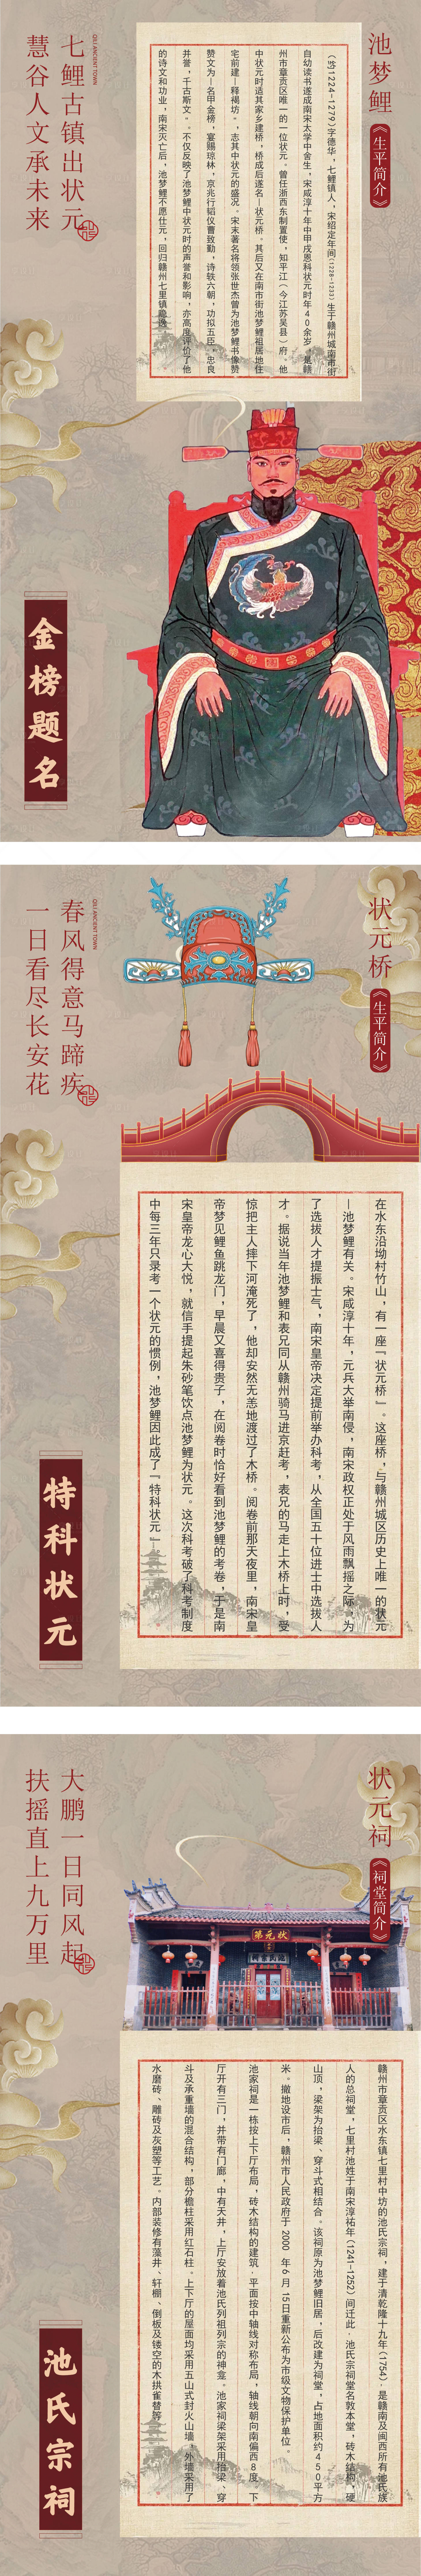 池梦鲤
《生平简介》
七鲤古镇出状元
慧谷人文承未来
QILI ANCIENT TOWN
(约1224-1279)字德华，七鲤镇人，宋绍定年间(1228-1233)生于赣州城南市街
自幼读书遂成南宋太学中舍生，宋咸淳十年中甲戌恩科状元时年40余岁，是赣
州市章贡区唯一的一位状元。曾任浙西东制置使，知平江(今江苏吴县)府。他
中状元时适其家乡建桥，桥成后遂名—状元桥。其后又在南市街池梦鲤祖居地住
宅前建—释褐坊"，志其中状元的盛况。宋末著名将领张世杰曾为池梦鲤书像赞
赞文为—名甲金榜，宴赐琼林，京兆行韬仪曹致勤，诗轶六朝，功拟五臣，忠良
并誉，千古斯文"。不仅反映了池梦鲤中状元时的声誉和影响，亦高度评价了他
的诗文和功业，南宋灭亡后，池梦鲤不愿仕元，回归赣州七里镇隐逸。
金榜题名
状元桥
《生平简介》
春风得意马蹄疾
一日看尽长安花
QILI ANCIENT TOWN
在水东沿坳村竹山，有一座『状元桥』。这座桥，与赣州城区历史上唯一的状元
—池梦鲤有关。宋咸淳十年，元兵大举南侵，南宋政权正处于风雨飘摇之际，为
了选拔人才提振士气，南宋皇帝决定提前举办科考，从全国五十位进士中选拔人
才。据说当年池梦鲤和表兄同从赣州骑马进京赶考，表兄的马走上木桥上时，受
惊把主人摔下河淹死了，他却安然无恙地渡过了木桥。阅卷前那天夜里，南宋皇
帝梦见鲤鱼跳龙门，早晨又喜得贵子，在阅卷时恰好看到池梦鲤的考卷，于是南
宋皇帝龙心大悦，就信手提起朱砂笔饮点池梦鲤为状元。这次科考破了科考制度
中每三年只录考一个状元的惯例，池梦鲤因此成了『特科状元』
特科状元
状元祠
《祠堂简介》
大鹏一日同风起
扶摇直上九万里
状元第
赣州市章贡区水东镇七里村中坊的池氏宗祠，建于清乾隆十九年(1754)，是赣南及闽西所有池氏族
人的总祠堂，七里村池姓于南宋淳祐年(1241-1252)间迁此，池氏宗祠堂名敦本堂，砖木结构，硬
山顶，梁架为抬梁、穿斗式相结合。该祠原为池梦鲤旧居，后改建为祠堂，占地面积约450平方
米。撤地设市后，赣州市人民政府于2000年6月15日重新公布为市级文物保护单位。
池家祠是一栋按上下厅布局，砖木结构的建筑，平面按中轴线对称布局，轴线朝向南偏西8度，下
厅开有三门，并带有门廊，中有天井，上厅安放着池氏列祖列宗的神龛。池家祠梁架采用抬梁、穿
斗及承重墙的混合结构，部分檐柱采用红石柱。上下厅的屋面均采用五山式封火山墙，外墙采用了
水磨砖、雕砖及灰塑等工艺。内部装修有藻井、轩棚、倒板及镂空的木拱雀替等
池氏宗祠